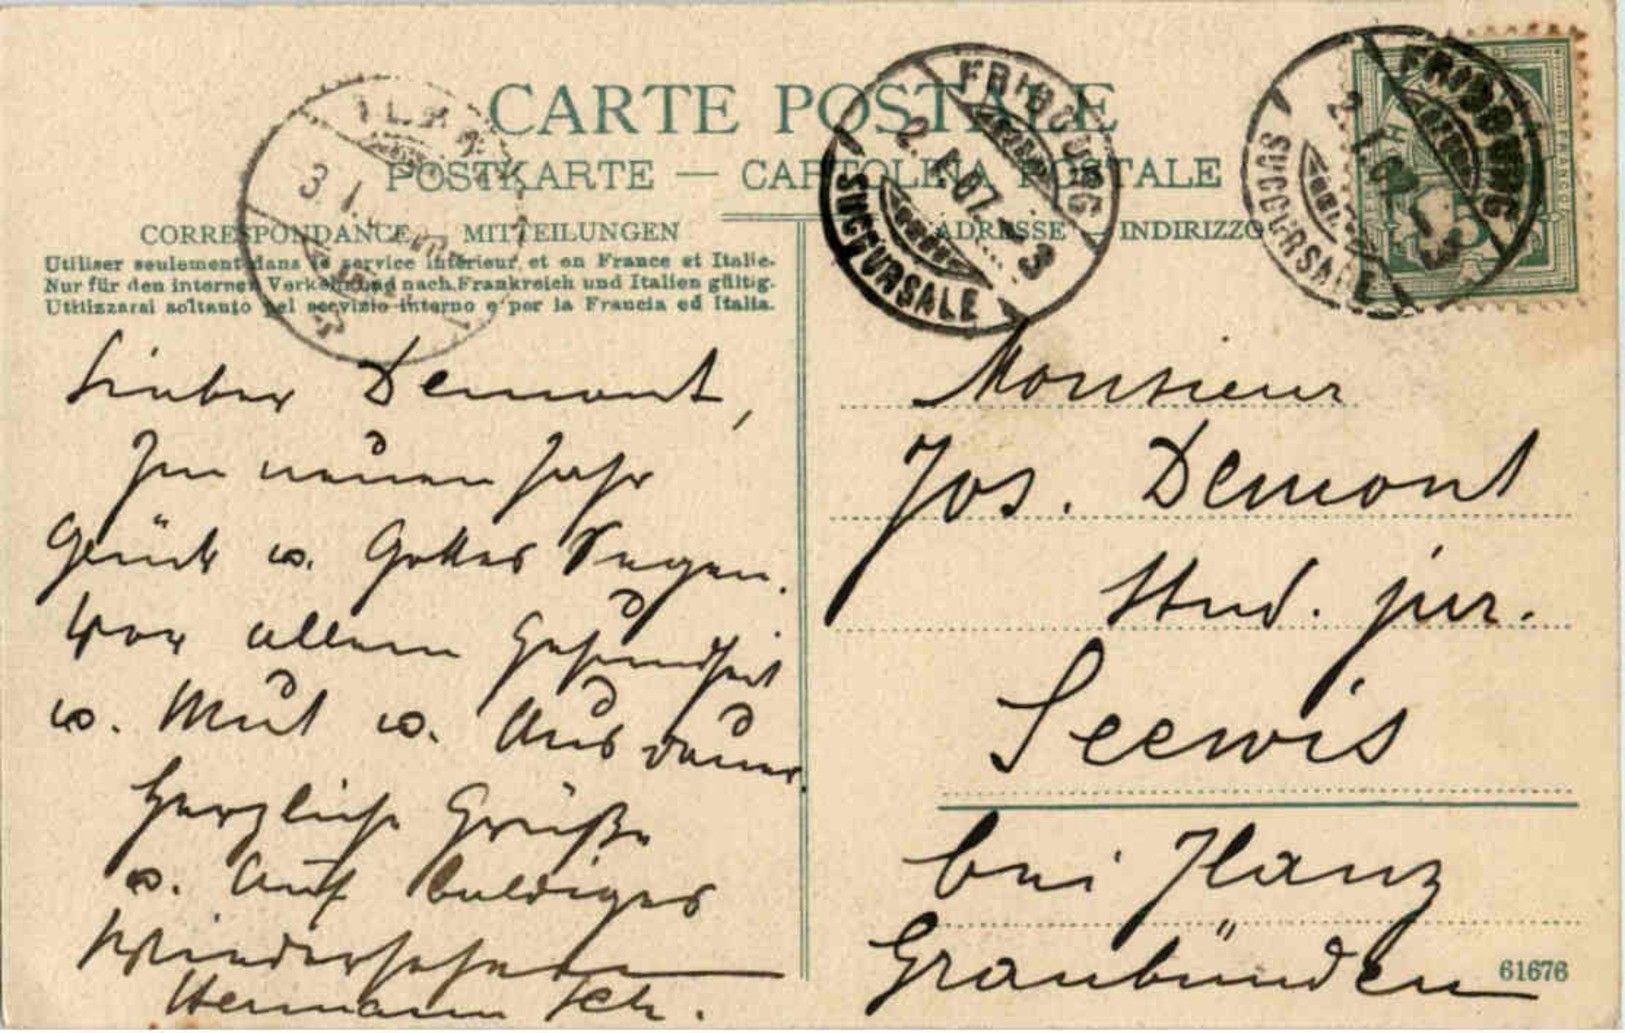 CARTE POSTALE
POSTKARTE — CARTOLINA POSTALE
CORRESPONDANCE — MITTEILUNGEN
Utiliser seulement dans le service intérieur et en France et Italie.
Nur für den internen Verkehr und nach Frankreich und Italien gültig.
Utilizzarsi soltanto pel servizio interno e per la Francia ed Italia.
Lieber Demont,
Im neuen Jahr
Glück u. Gottes Segen.
Vor allem Gesundheit
u. Mut u. Ausdauer
Herzliche Grüße
u. Auf baldiges
Wiedersehen
Hermann Sch.
ADRESSE — INDIRIZZO
FRIBOURG
2. I. 07. – 3
SUCCURSALE
FRIBOURG
2. I. 07. – 3
SUCCURSALE
FRANCO
5
Monsieur
Jos. Demont
Stud. jur.
Seewis
bei Ilanz
Graubünden
61676